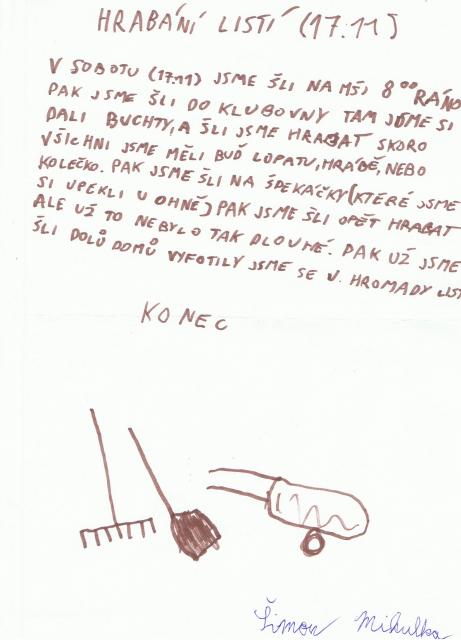 HRABÁNÍ LISTÍ (17.11)
V SOBOTU (17.11) JSME ŠLI NA MŠI 8⁰⁰ RÁNO
PAK JSME ŠLI DO KLUBOVNY TAM JSME SI
DALI BUCHTY, A ŠLI JSME HRABAT SKORO
VŠICHNI JSME MĚLI BUĎ LOPATU, HRÁBĚ, NEBO
KOLEČKO. PAK JSME ŠLI NA ŠPEKÁČKY (KTERÉ JSME
SI UPEKLI U OHNĚ) PAK JSME ŠLI OPĚT HRABAT
ALE UŽ TO NEBYLO TAK DLOUHÉ. PAK UŽ JSME
ŠLI DOLŮ DOMŮ VYFOTILY JSME SE U HROMADY LIST
KONEC
Šimon Mikulka